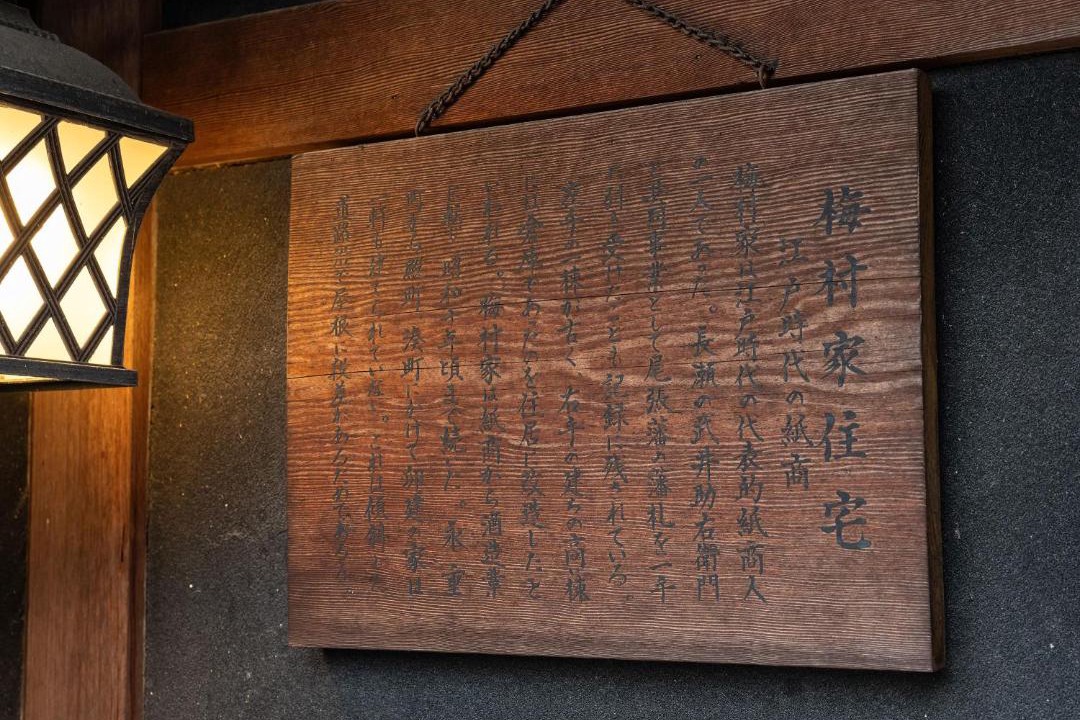 梅村家住宅
江戸時代の紙商
梅村家は江戸時代の代表的紙商人
の一人であった。長瀬の武井助右衛門
と共同事業として尾張藩の藩札を一手
受けたことも記録に残されている。
棟が古く、右手の建ちの高い棟
は倉庫であったのを住居に改造したと
いわれる。梅村家は紙商から酒造業
に転じ昭和十年頃まで続いた。
町にかけて卯建の家は
一軒も建てられていない。これは傾斜した
道路で屋根に段差があるためであろう。